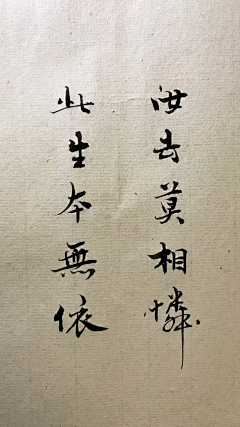 汝去莫相憐
此生本無依